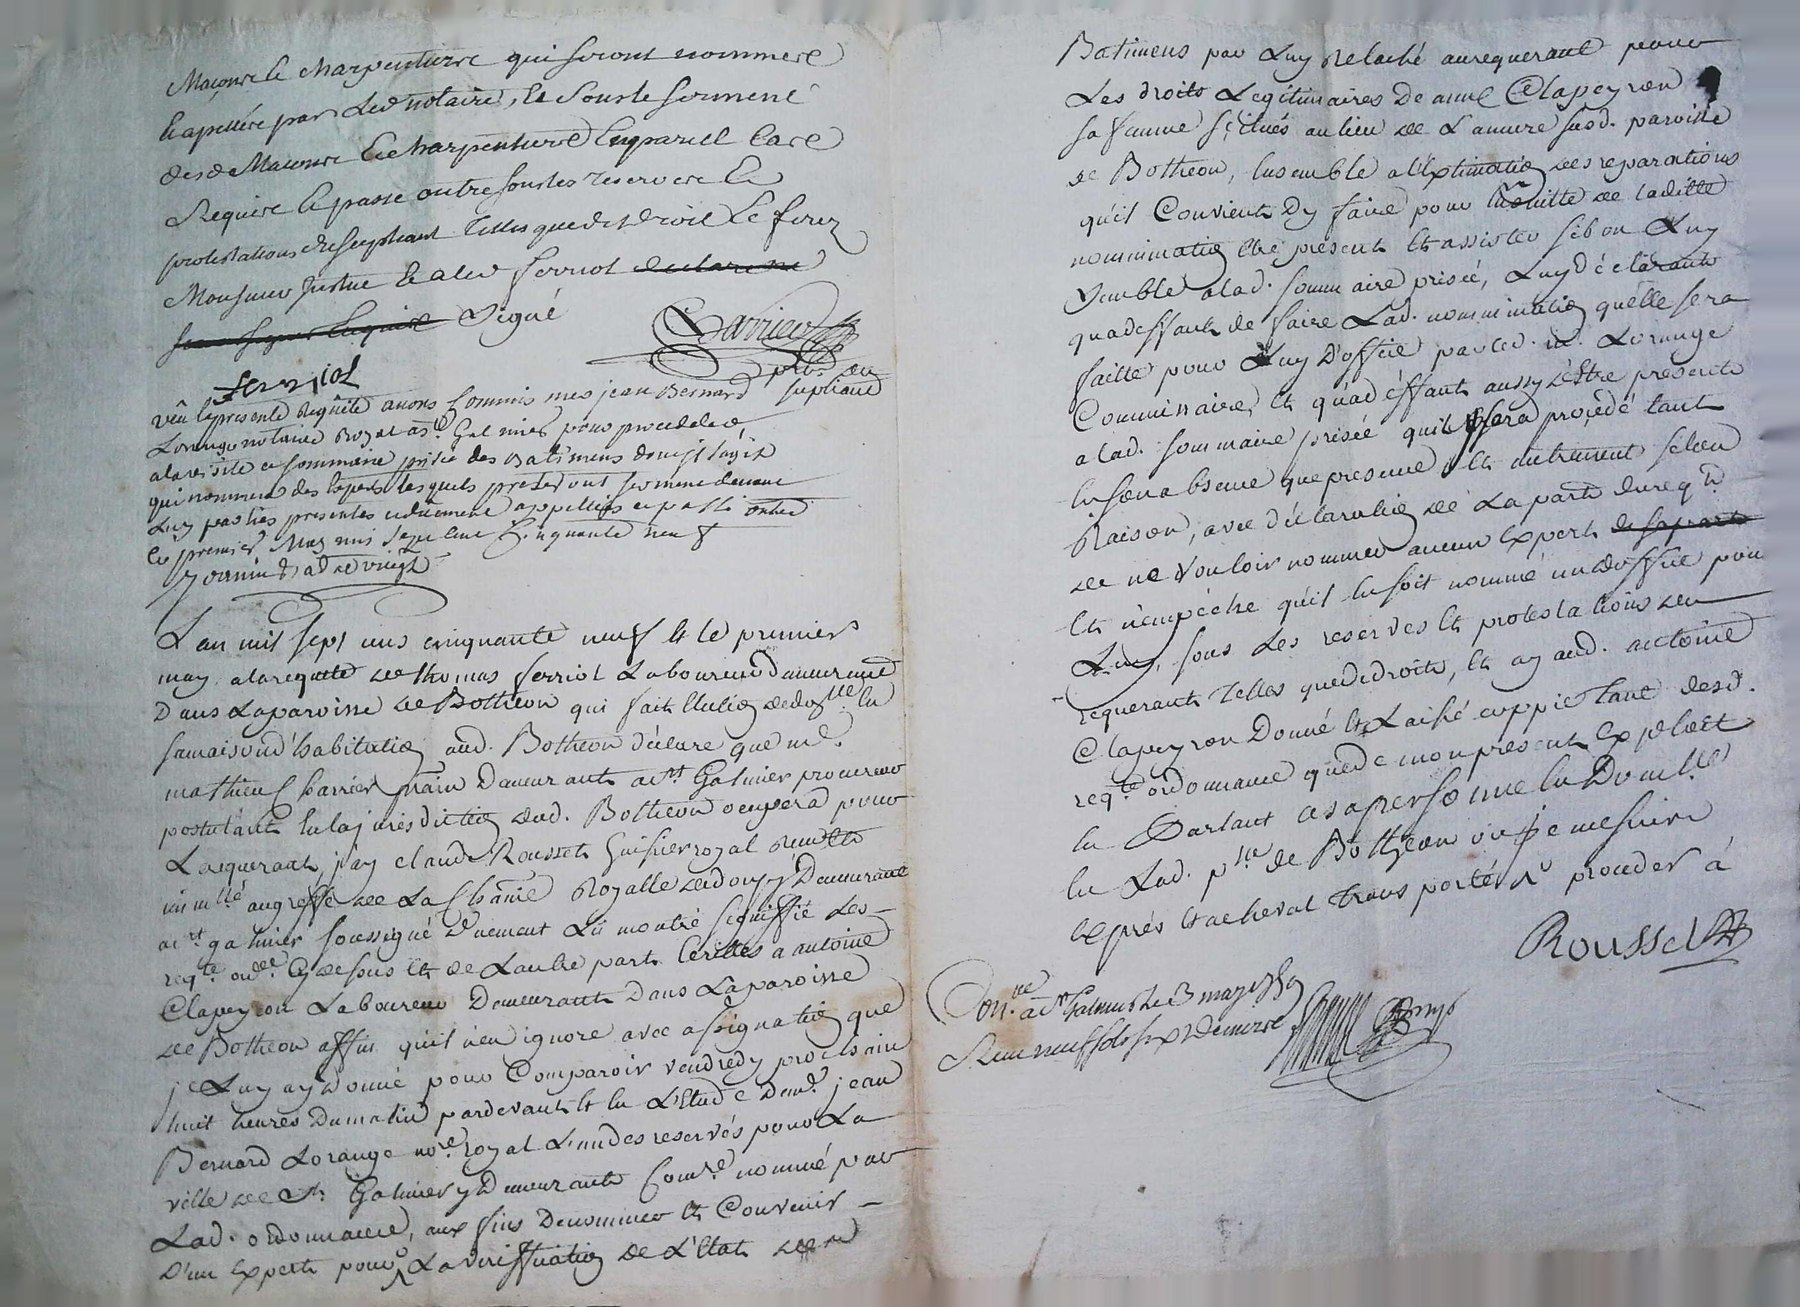 Maçons et charpentiers qui seront nommés
et apellés par led notaire, et sous le serment
desd Maçons et charpentiers en pareil cas
Requis et passé outre sous les reserves et
protestations du supliant telles que de droit et ferez
Monsieur justice et a led ferriol declaré ne
signé
Barrieu
ferriol
pr. du supliant
veu la presente Requête avons commis me jean Bernard
Lorange notaire Royal a st Galmier pour proceder
a la visite et sommaire prisée des Batimens dont s'agit
qui nommera des experts lesquels preteront serment devant
luy parties presentes ou dument appellées et passé outre
ce premier May mil sept cent cinquante neuf
L'an mil sept cens cinquante neuf et le premier
may a la requete de thomas ferriol Laboureur demeurant
Dans La paroisse de Botheon qui fait Election de domlle en
sa maison d'habitation aud. Botheon declare que me.
mathieu Barrieu demeurant a st Galmier procureur
postulant en la jurisdiction dud. Botheon occupera pour
Le querant, j'ay claude Rousset huissier royal
immlé au greffe de La royalle demeurant
a st galmier soussigné Duement montré signiffié les
reqte ondce cy dessus et de L'autre part Ecrittes a antoine
Clapeyron Laboureur Demeurant Dans La paroisse
de Botheon affin qu'il n'en ignore avec assignation que
je Luy ay Donné pour Comparoir vendredy prochain
huit heures du matin pardevant et en L'Etude de me jean
Bernard Lorange nore royal L'un des reservés pour La
ville de st Galmier y Demeurant Comre nommé par
Lad. ordonnance, aux fins De nommer et Convenir
D'un Expert pour La veriffication de L'Etat des
Batimens par Luy Relaché au requerant pour
Les droits Legitimaires De anne Clapeyron
sa femme scitués au lieu de Lamure susd. paroisse
de Botheon, Ensemble a l'Extimation des reparations
qu'il Convient D'y faire pour En suitte de laditte
nommination Etre present et assister si bon Luy
semble a lad. sommaire prisée, Luy déclarant
qu'a deffaut de faire Lad. nommination quelle sera
faitte pour Luy D'office par led. me. Lorange
Commissaire, et qu'a déffaut aussy d'Estre present
a lad. sommaire prisée qu'il sera procédé tant
En son absence que presence et autrement selon
Raison, avec déclaration de La part du reqt
de ne vouloir nommer aucun Expert de sa part
et n'empéche qu'il En soit nommé un d'office pour
Luy, sous Les reserves et protestations du
requerant telles que de droit, et ay aud. antoine
Clapeyron Donné et Laissé coppie tant desd.
reqte ordonnance que de mon present Exploit
En Parlant a sa personne En Domlle
En Lad. psse de Botheon ou je me suis
exprés et a cheval transporté pr proceder à
Rousset
Con.lle a st Galmier Le 3 may 1759
Recu neuf sols six deniers